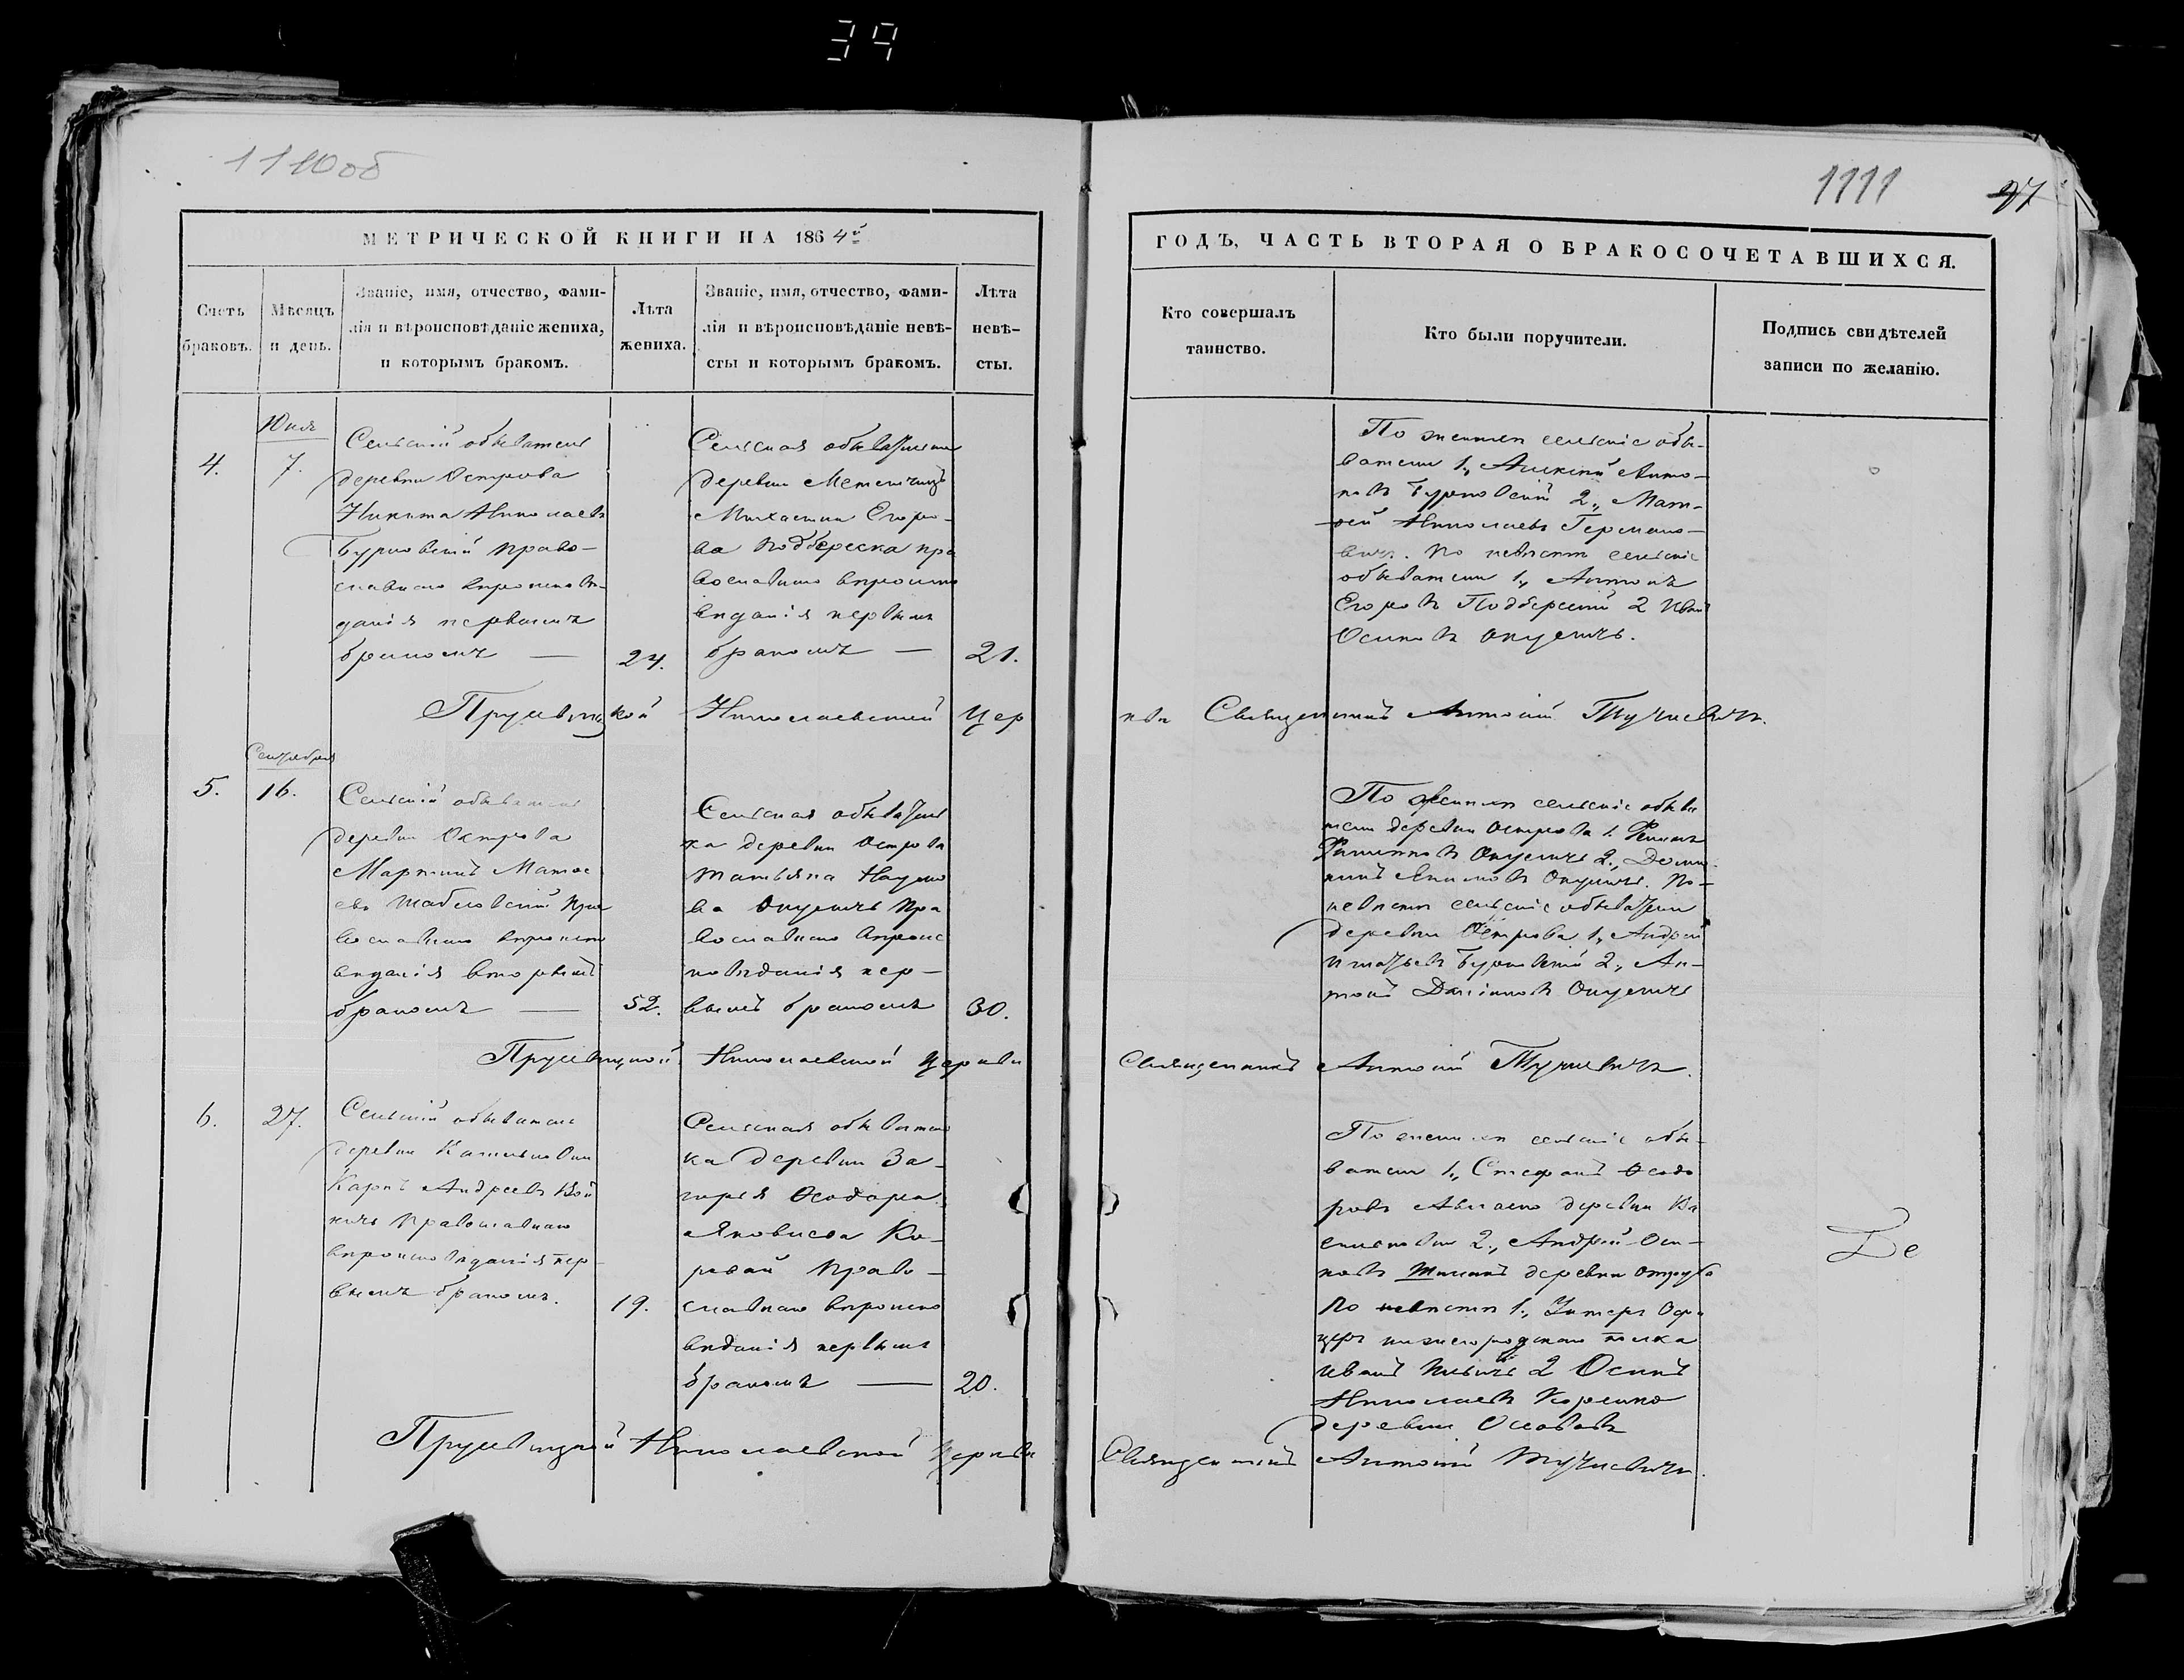 34
1110об
1111
97
МЕТРИЧЕСКОЙ КНИГИ НА 1864й
ГОДЪ, ЧАСТЬ ВТОРАЯ О БРАКОСОЧЕТАВШИХСЯ.
Счетъ браковъ.
Мѣсяцъ и день.
Званіе, имя, отчество, фами-
лія и вѣроисповѣданіе жениха,
и которымъ бракомъ.
Лѣта
жениха.
Званіе, имя, отчество, фами-
лія и вѣроисповѣданіе невѣ-
сты и которымъ бракомъ.
Лѣта
невѣ-
сты.
Кто совершалъ
таинство.
Кто были поручители.
Подпись свидѣтелей
записи по желанію.
4.
Юля
7.
Сельскій обыватель
деревни Острова
Никита Николаевъ
Бурновскій право-
славнаго вѣроисповѣ-
данія первымъ
бракомъ —
24.
Сельская обывательни
деревни
Егоро-
ва Подбереска пра
вославнаго вѣроиспо
вѣданія первымъ
бракомъ —
21.
По женихѣ сельскіе обы-
ватели 1., Алексѣй Анто-
новъ Бурновскій 2., Мат-
ѳей Николаевъ Германо-
вичъ. По невѣстѣ сельскіе
обыватели 1., Антонъ
Егоровъ Подберескій 2 Иванъ
Осиповъ Окуличъ.
Николаевской Цер
кви Священникъ Антоній
5.
Сентября
16.
Сельскій обыватель
деревни Острова
Мартинъ Матѳе
евъ Шабловскій пра
вославнаго вѣроиспо
вѣданія вторымъ
бракомъ —
52.
Сельская обыватель
ка деревни Острова
Татьяна Наумо
ва Окуличъ пра
вославнаго вѣроис
повѣданія пер-
вымъ бракомъ
30.
По женихѣ сельскіе обыва
тели деревни Острова 1.
Окуличъ 2.,
Окуличъ. По-
невѣстѣ сельскіе обыватели
деревни Острова 1., Андрей
Игнатьевъ Бурновскій 2., Ан-
тонъ Окуличъ
Николаевской Церкви
Священникъ Антоній
6.
27.
Сельскій обыватель
деревни
Карпъ Андреевъ
православнаго
вѣроисповѣданія пер-
вымъ бракомъ.
19.
Сельская обыватель
ка деревни За-
горья Ѳеодора
Яковлева Ко-
право-
славнаго вѣроиспо
вѣданія первымъ
бракомъ —
20.
По женихѣ сельскіе обы-
ватели 1., Стефанъ Ѳеодо
ровъ деревни
2., Андрей Оси-
повъ деревни
По невѣстѣ 1., Унтеръ Офи
церъ нижегородскаго полка
Иванъ 2 Осипъ
Николаевъ
деревни Осововъ
De
Николаевской Церкви
Священникъ Антоній